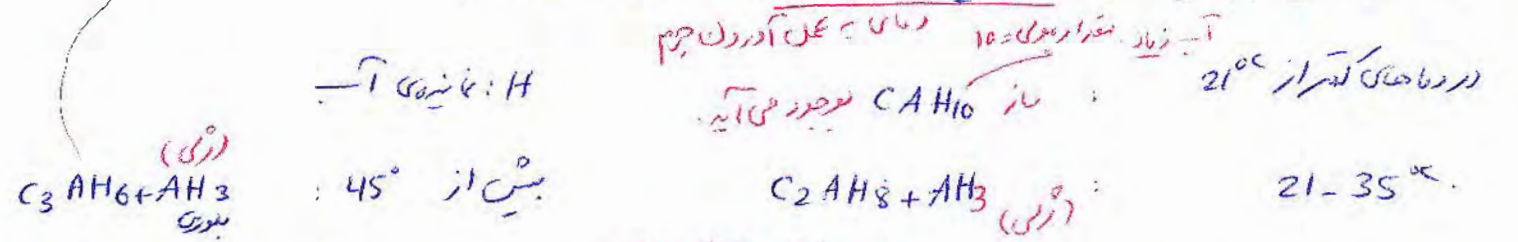 آب زیاد. مقدار مولی = 10 دمای به عمل آوردن جرم
در دماهای کمتر از 21°C : فاز CAH10 بوجود می‌آید. H : نماینده‌ی آب
21-35°C : C2AH8 + AH3 (ژلی) بیش از 45° : C3AH6 + AH3 (ژلی) بلوری